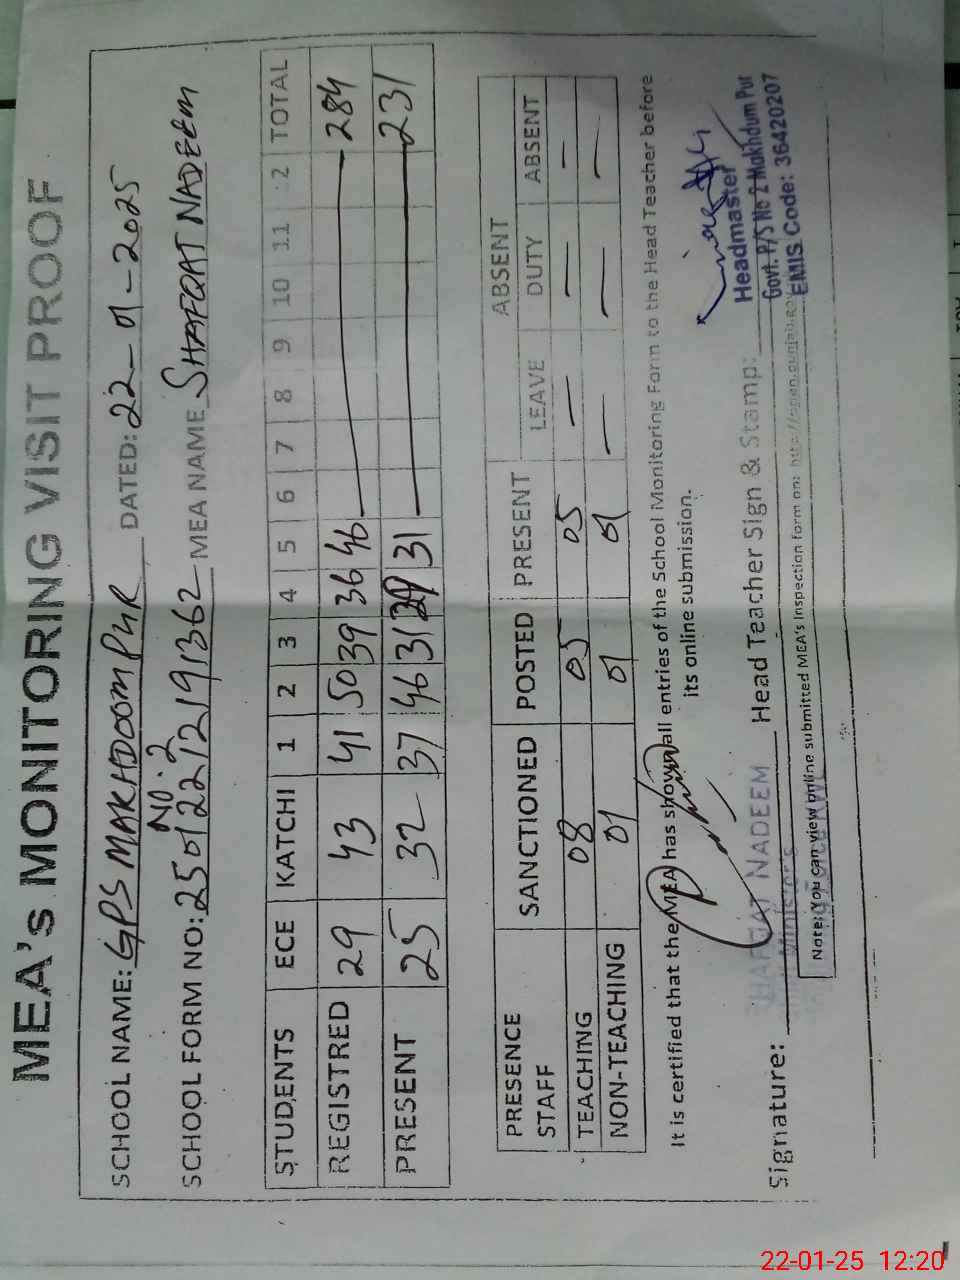 MEA's MONITORING VISIT PROOF
SCHOOL NAME: GPS MAKHDOOM PUR DATED: 22-01-2025
NO.2
SCHOOL FORM NO: 25012212191362 MEA NAME SHAFQAT NADEEM
STUDENTS ECE KATCHI 1 2 3 4 5 6 7 8 9 10 11 12 TOTAL
REGISTRED 29 43 41 50 39 36 46 284
PRESENT 25 32 37 46 31 29 31 231
PRESENCE STAFF SANCTIONED POSTED PRESENT ABSENT
LEAVE DUTY ABSENT
TEACHING 08 05 05 — — —
NON-TEACHING 01 01 01 — — —
It is certified that the MEA has shown all entries of the School Monitoring Form to the Head Teacher before
its online submission.
Signature: Head Teacher Sign & Stamp:
SHAFQAT NADEEM
Minister's
Headmaster
Govt. P/S No 2 Makhdum Pur
EMIS Code: 36420207
Note: You can view online submitted MEA's Inspection form on: http://open.punjab.gov
22-01-25 12:20